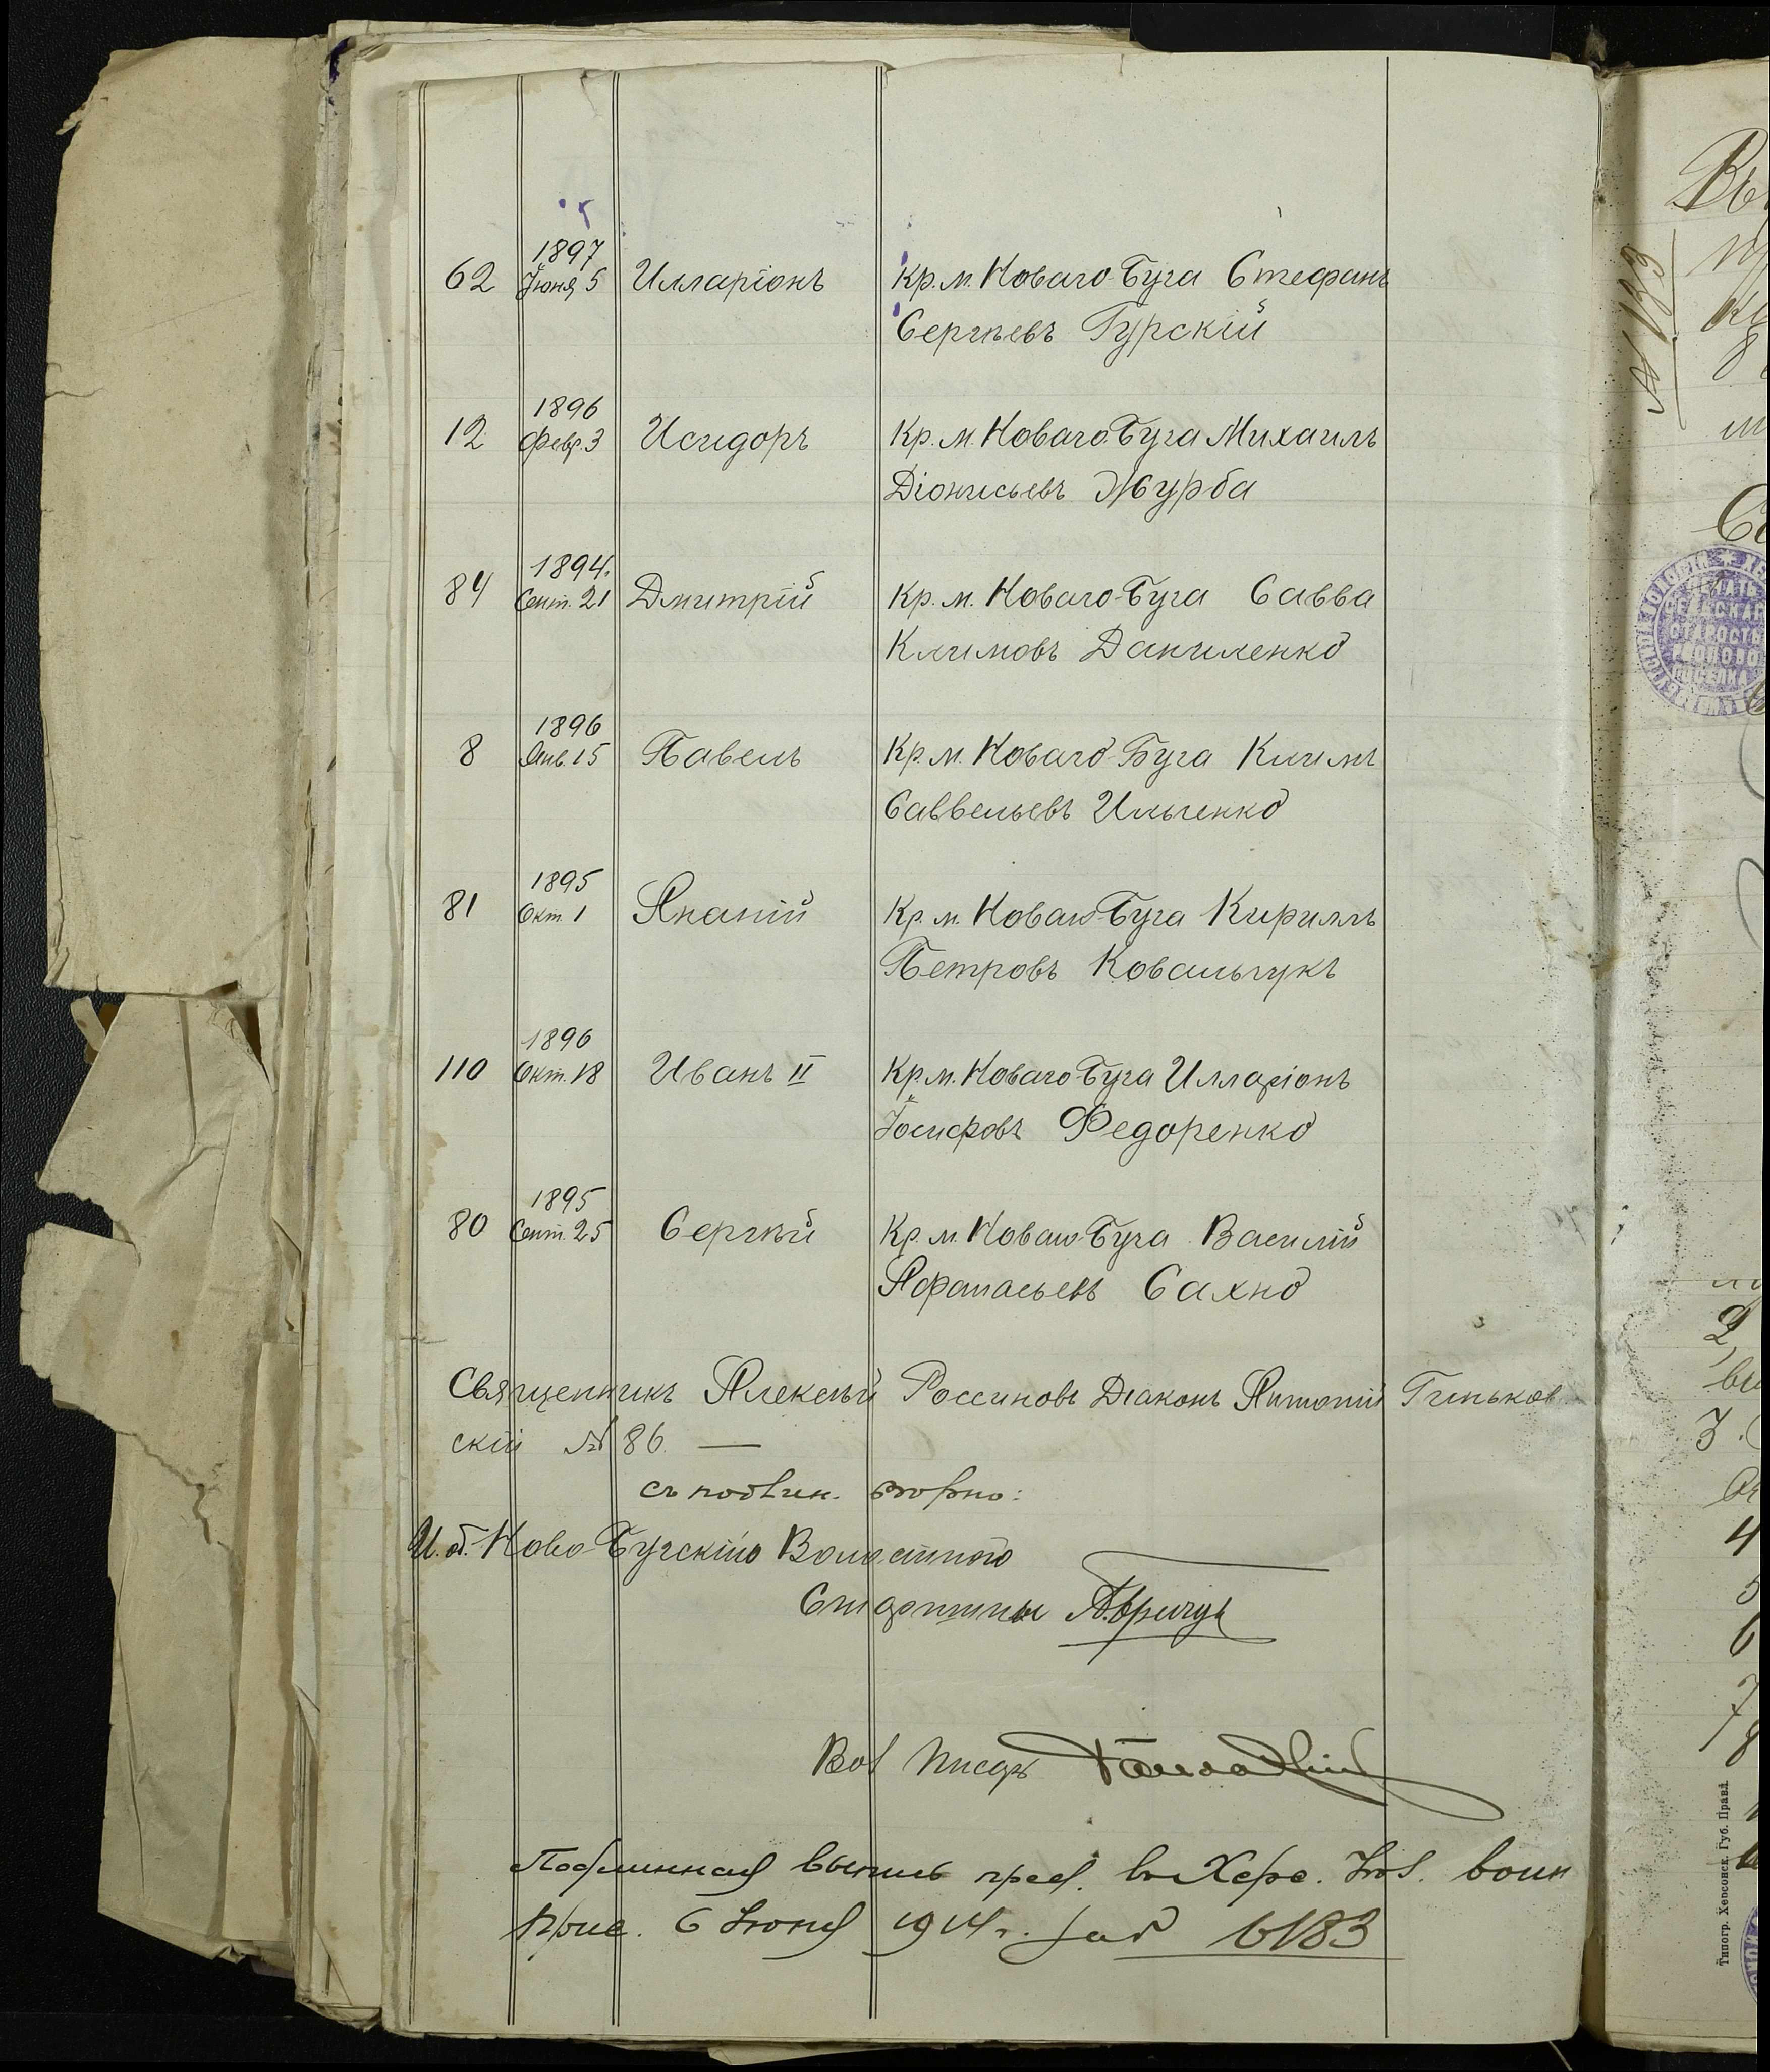 1897
62 Іюня 5 Илларіонъ Кр. м. Новаго-Буга Стефанъ
Сергѣевъ Гурскій
1896
12 Февр. 3 Исидоръ Кр. м. Новаго-Буга Михаилъ
Діонисьевъ Журба
1894.
84 Сент. 21 Дмитрій Кр. м. Новаго-Буга Савва
Климовъ Даниленко
1896
8 Янв. 15 Павелъ Кр. м. Новаго-Буга Климъ
Саввельевъ Ильченко
1895
81 Окт. 1 Ананій Кр. м. Новаго-Буга Кириллъ
Петровъ Ковальчукъ
1896
110 Окт. 18 Иванъ II Кр. м. Новаго-Буга Илларіонъ
Іосифовъ Федоренко
1895
80 Сент. 25 Сергѣй Кр. м. Новаго-Буга Василій
Афанасьевъ Сахно
Священникъ Алексѣй Россиновъ Діаконъ Антоній Гиньков
скій № 86. —
съ подлин. вѣрно:
И. об. Ново-Бугскаго Волостного
Старшины
Вол Писарь
Подлинная выпись пред. въ Херс. воин
прис. 6 Іюня 1914 г. за № 6183
№ 133
Типогр. Херсонск. Губ. Правл.